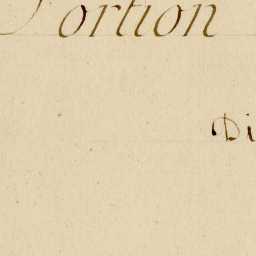 Portion
Di